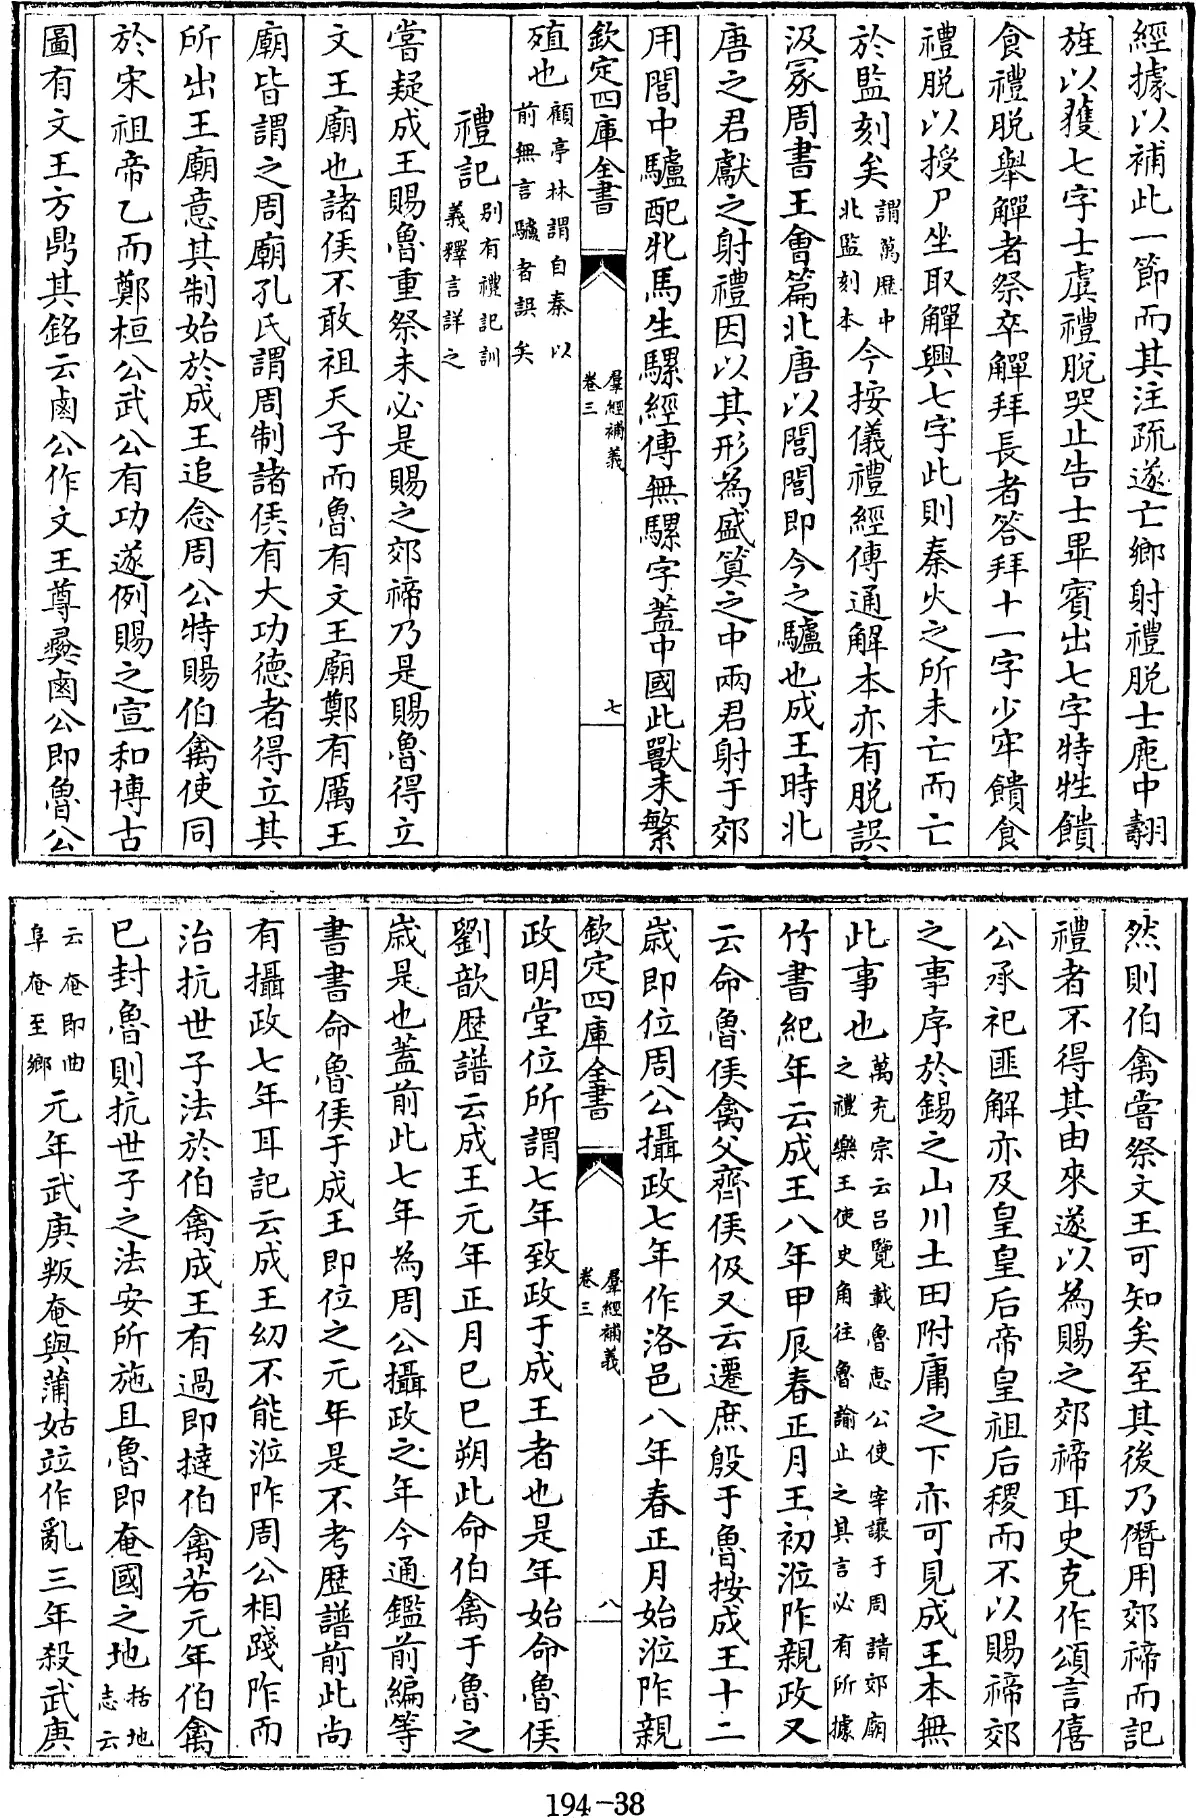 經據以補此一節而其注疏遂亡鄉射禮脱士鹿中翿
旌以獲七字士虞禮脱哭止告士畢賓出七字特牲饋
食禮脱舉觶者祭卒觶拜長者答拜十一字少牢饋食
禮脱以授尸坐取觶興七字此則秦火之所未亡而亡
於監刻矣謂萬厯中北監刻本今按儀禮經傳通解本亦有脱誤
汲冢周書王會篇北唐以閭閭即今之驢也成王時北
唐之君獻之射禮因以其形為盛筭之中兩君射于郊
用閭中驢配牝馬生騾經傳無騾字蓋中國此獸未繁
欽定四庫全書
羣經補義
卷三
七
殖也顧亭林謂自秦以前無言驢者誤矣
禮記别有禮記訓義釋言詳之
嘗疑成王賜魯重祭未必是賜之郊禘乃是賜魯得立
文王廟也諸侯不敢祖天子而魯有文王廟鄭有厲王
廟皆謂之周廟孔氏謂周制諸侯有大功德者得立其
所出王廟意其制始於成王追念周公特賜伯禽使同
於宋祖帝乙而鄭桓公武公有功遂例賜之宣和博古
圖有文王方鼎其銘云鹵公作文王尊彝鹵公即魯公
然則伯禽嘗祭文王可知矣至其後乃僭用郊禘而記
禮者不得其由來遂以為賜之郊禘耳史克作頌言僖
公承祀匪解亦及皇皇后帝皇祖后稷而不以賜禘郊
之事序於錫之山川土田附庸之下亦可見成王本無
此事也萬充宗云吕覽載魯惠公使宰讓于周請郊廟之禮樂王使史角往魯諭止之其言必有所據
竹書紀年云成王八年甲辰春正月王初涖阼親政又
云命魯侯禽父齊侯伋又云遷庶殷于魯按成王十二
嵗即位周公攝政七年作洛邑八年春正月始涖阼親
欽定四庫全書
羣經補義
卷三
八
政明堂位所謂七年致政于成王者也是年始命魯侯
劉歆厯譜云成王元年正月巳巳朔此命伯禽于魯之
嵗是也蓋前此七年為周公攝政之年今通鑑前編等
書書命魯侯于成王即位之元年是不考厯譜前此尚
有攝政七年耳記云成王幼不能涖阼周公相踐阼而
治抗世子法於伯禽成王有過即撻伯禽若元年伯禽
巳封魯則抗世子之法安所施且魯即奄國之地括地志云
云奄即曲阜奄至鄉元年武庚叛奄與蒲姑竝作亂三年殺武庚
194-38